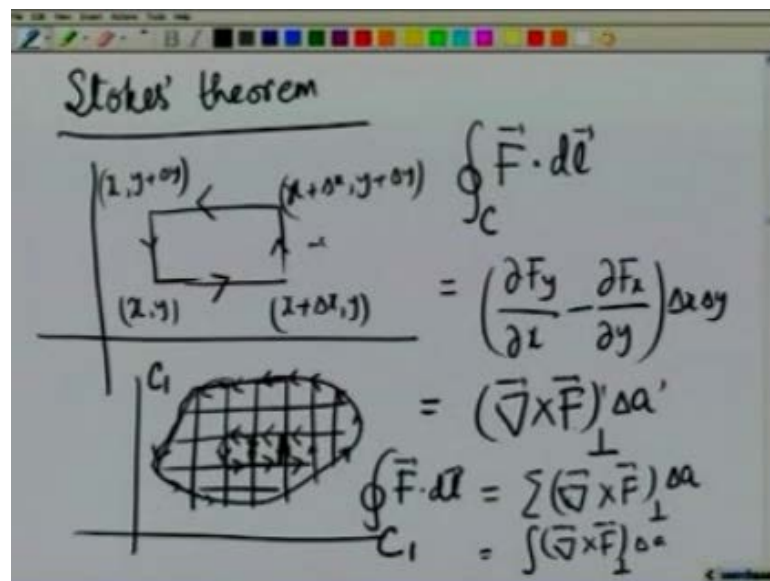 Stokes' theorem
(x, y+Δy) (x+Δx, y+Δy)
(x, y) (x+Δx, y)
∮_C F⃗ · dl⃗
= (∂F_y/∂x − ∂F_x/∂y) Δx Δy
= (∇⃗ × F⃗)_⊥ Δa
C₁
∮_{C₁} F⃗ · dl⃗ = Σ (∇⃗ × F⃗)_⊥ Δa
= ∫ (∇⃗ × F⃗)_⊥ Δa